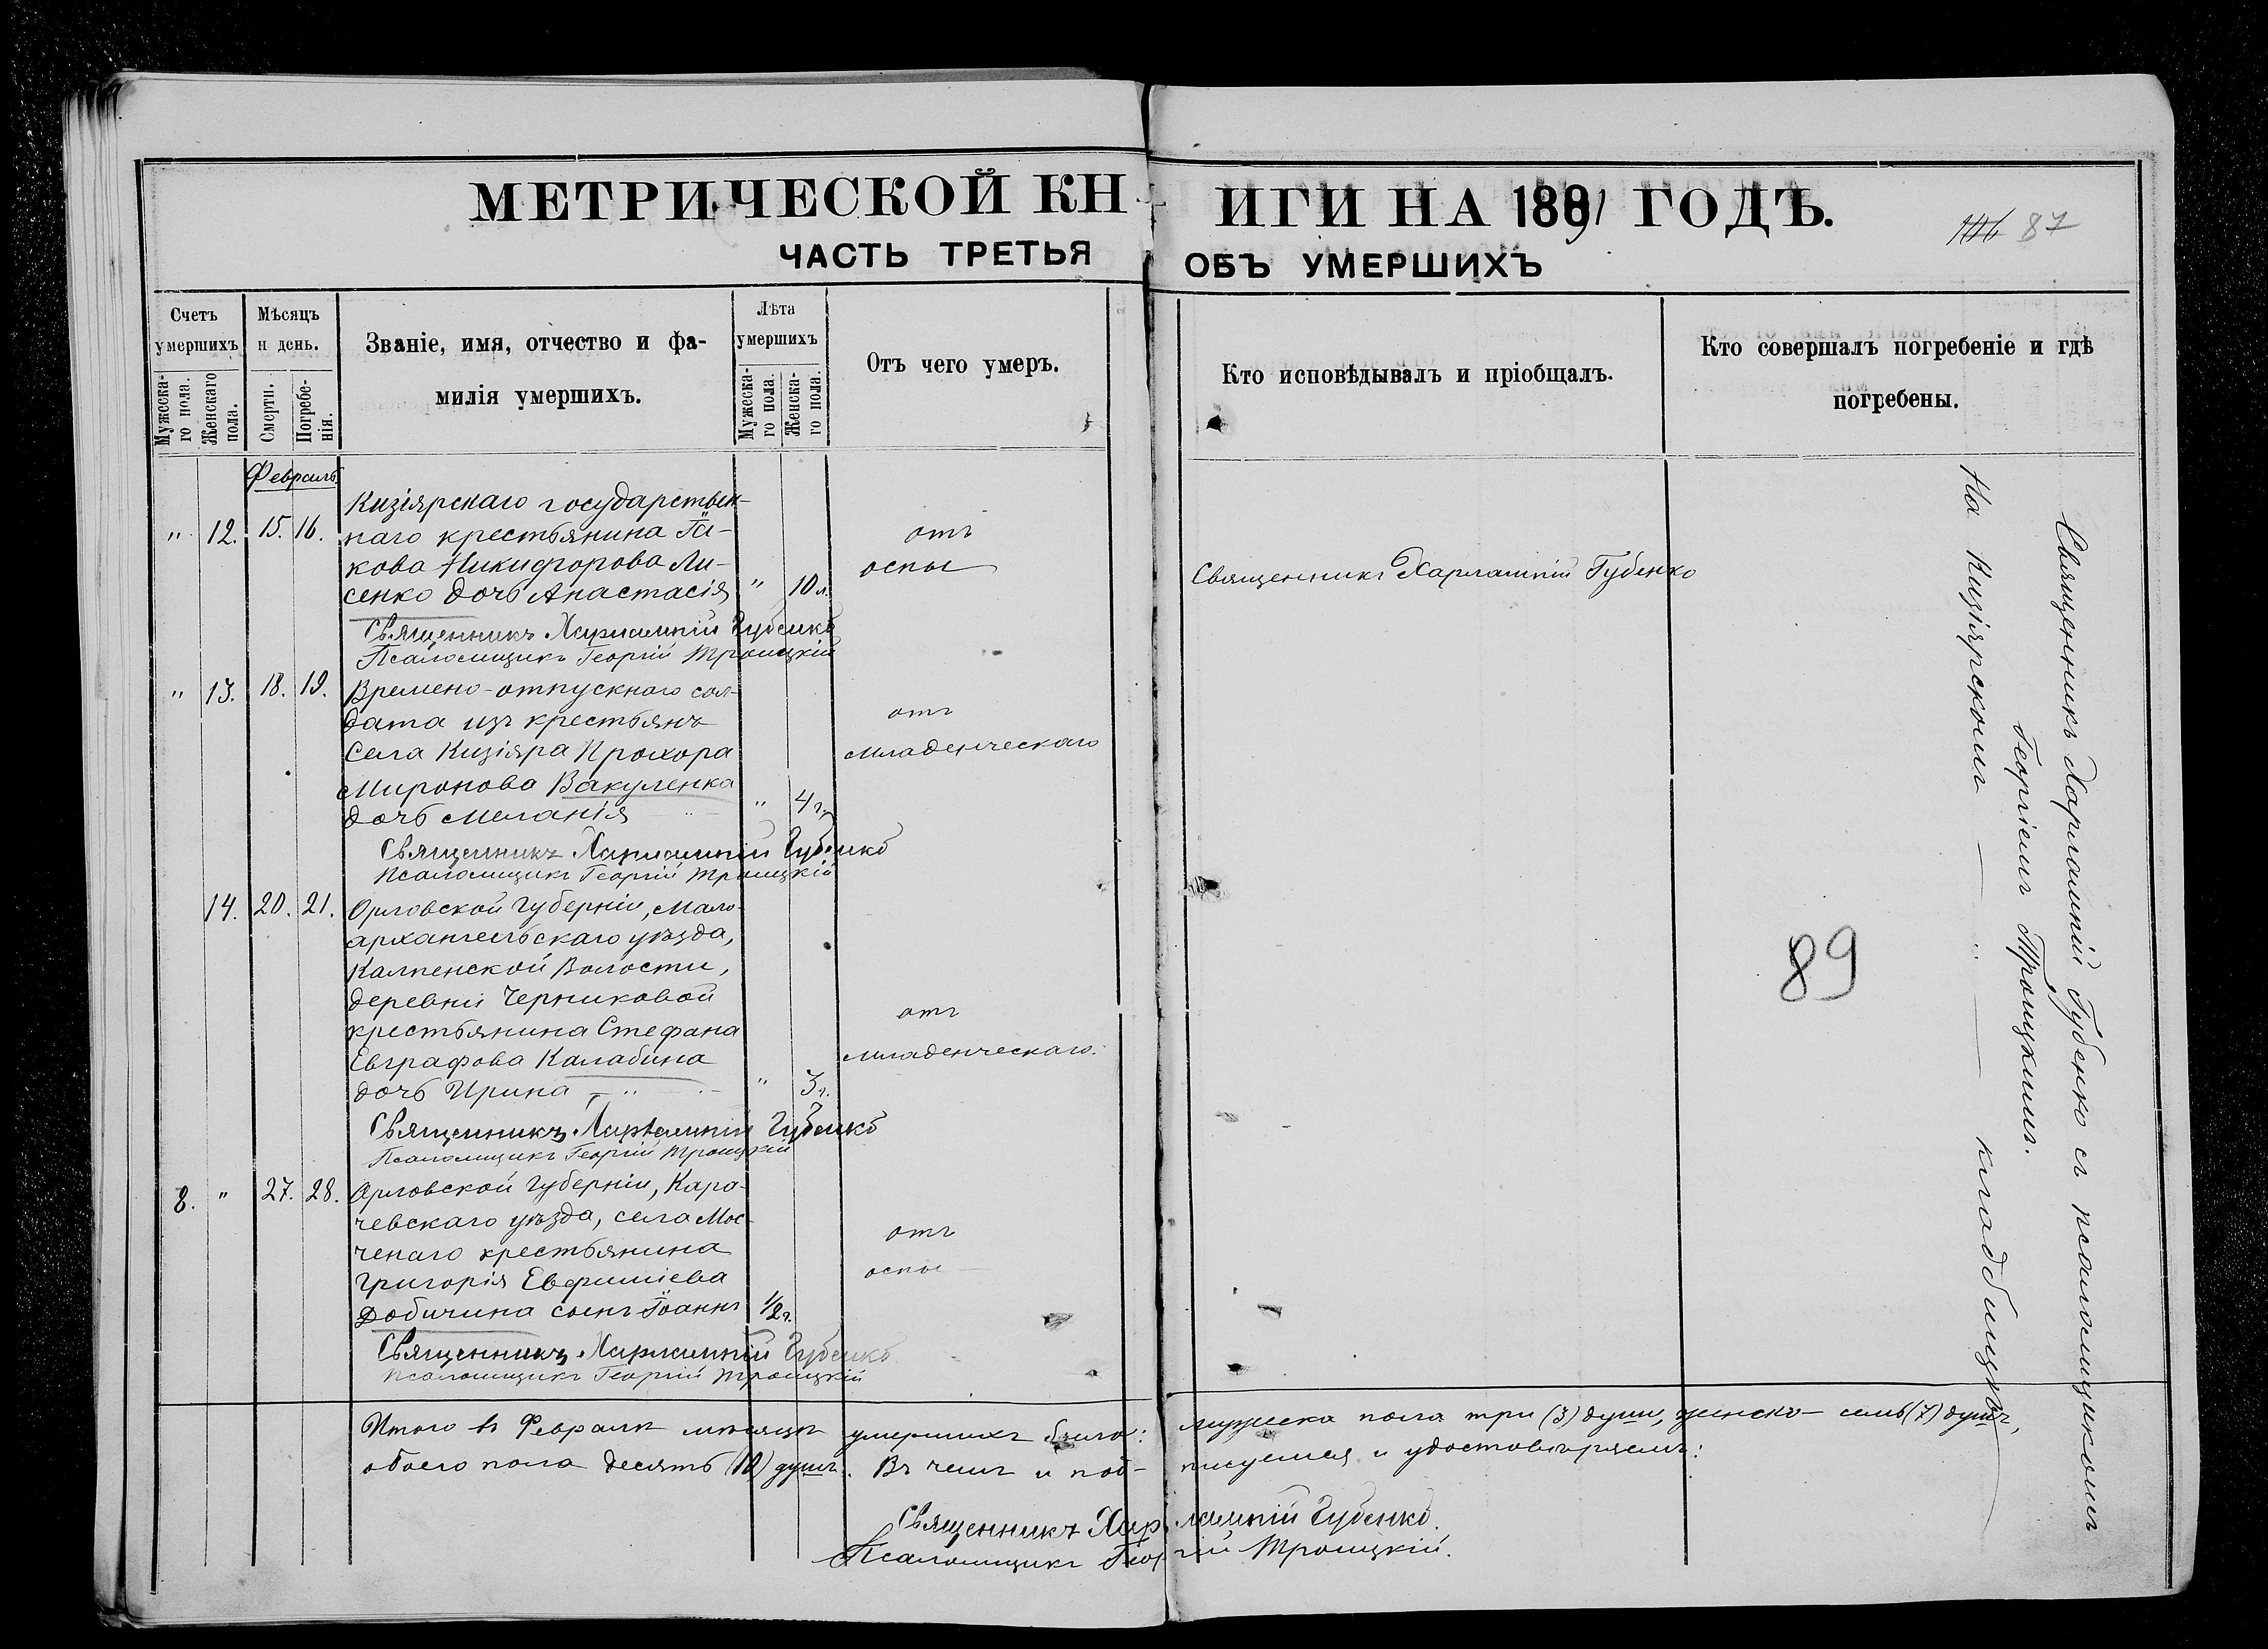 МЕТРИЧЕСКОЙ КНИГИ НА 1891 ГОДЪ.
106 87
ЧАСТЬ ТРЕТЬЯ ОБЪ УМЕРШИХЪ
Счетъ умершихъ
Мужеска-го пола.
Женскаго пола.
Мѣсяцъ и день.
Смерти.
Погребе-нія.
Званіе, имя, отчество и фа-
милія умершихъ.
Лѣта умершихъ
Мужеска-го пола.
Женска-го пола.
Отъ чего умеръ.
Кто исповѣдывалъ и пріобщалъ.
Кто совершалъ погребеніе и гдѣ
погребены.
Февраль
Кизіярскаго государствен-
" 12. 15. 16. наго крестьянина Іа- отъ
кова Никифорова Ли- оспы
сенко дочь Анастасія " 10 л. Священникъ Харлампій Губенко
Священникъ Харлампій Губенко
Псаломщикъ Георгій Троицкій
" 13. 18. 19. Времено-отпускного сол-
дата изъ крестьянъ отъ
Села Кизіяра Прохора младенческаго
Миронова Вакуленка
дочь Меланія " 4 г.
Священникъ Харлампій Губенко
Псаломщикъ Георгій Троицкій
14. 20. 21. Орловской Губерніи, Мало-
архангельскаго уѣзда,
Калпенской Волости,
деревни Черниковой
крестьянина Стефана отъ
Евграфова Калабина младенческаго.
дочь Ирина " 3 г.
Священникъ Харлампій Губенко
Псаломщикъ Георгій Троицкій
8. " 27. 28. Орловской Губерніи, Кара-
чевскаго уѣзда, села Мос-
ченаго крестьянина отъ
Григорія Евфиміева оспы
Добичина сынъ Іоаннъ 1/2 г.
Священникъ Харлампій Губенко
Псаломщикъ Георгій Троицкій
Священникъ Харлампій Губенко съ псаломщикомъ
Георгіемъ Троицкимъ.
На Кизіярскомъ кладбищѣ
89
Итого въ Февралѣ мѣсяцѣ умершихъ было: мужеска пола три (3) души, женска семь (7) душъ,
обоего пола десять (10) душъ. Въ чемъ и под-писуемся и удостовѣряемъ:
Священникъ Харлампій Губенко.
Псаломщикъ Георгій Троицкій.